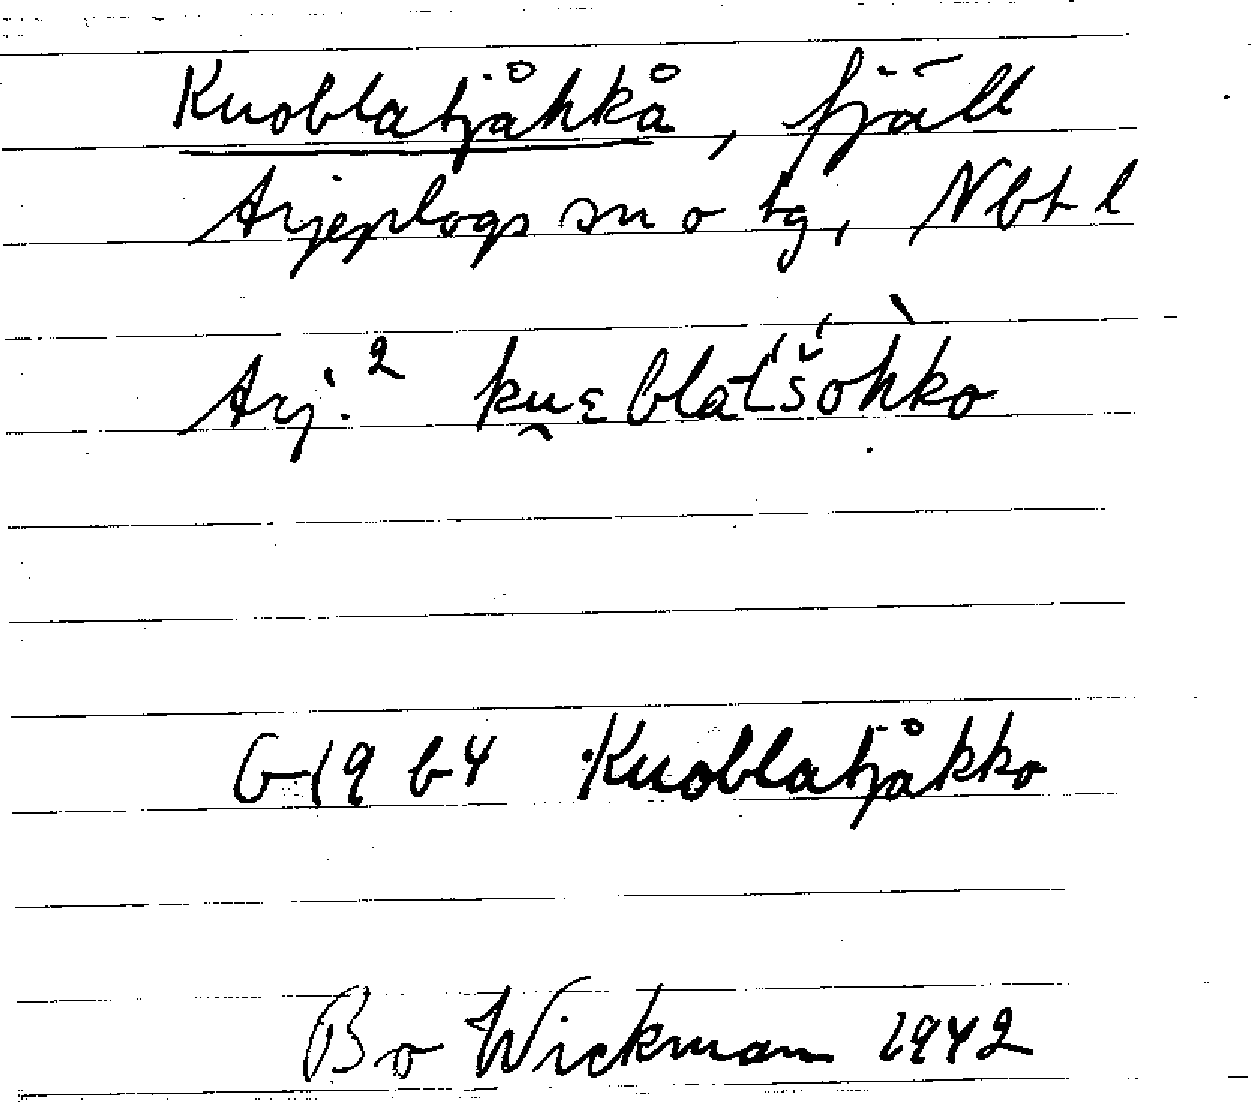 Kuoblatjåhkå, fjäll
Arjeplogs sn o tg, Nbt l
Arj.² ku̯ɛblat́š́òhko
G 19 b4 Kuoblatjåkko
Bo Wickman 1942